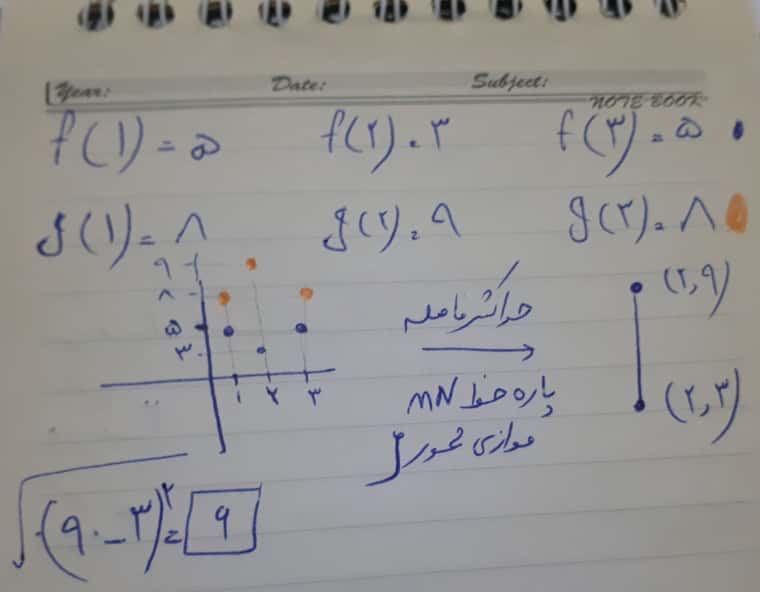 Year: Date: Subject:
NOTE BOOK
f(۱) = ۵ f(۲) = ۳ f(۳) = ۵
g(۱) = ۸ g(۲) = ۹ g(۳) = ۸
۹
۸
۵
۳
۱ ۲ ۳
حداکثر فاصله
پاره خط MN
موازی محور y
(۲,۹)
(۲,۳)
√(۹-۳)^۲ = ۶